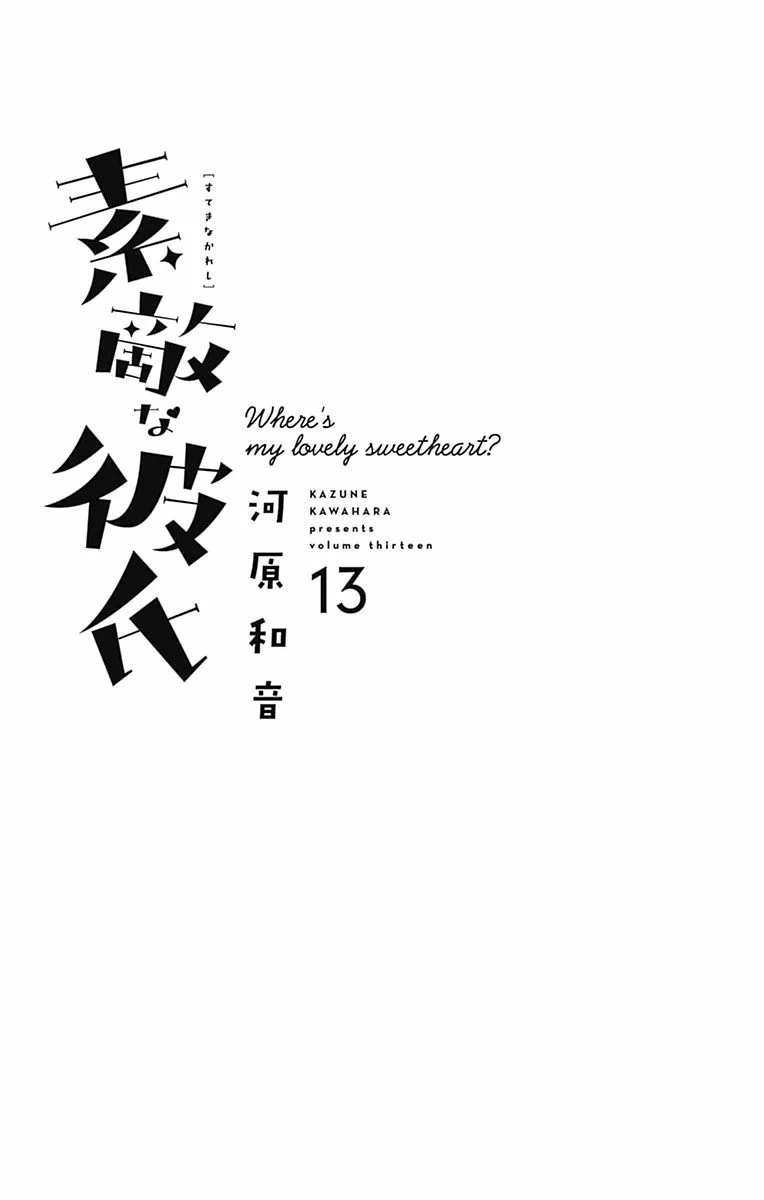 素敵な彼氏
[すてきなかれし]
Where's
my lovely sweetheart?
河原和音
KAZUNE
KAWAHARA
presents
volume thirteen
13